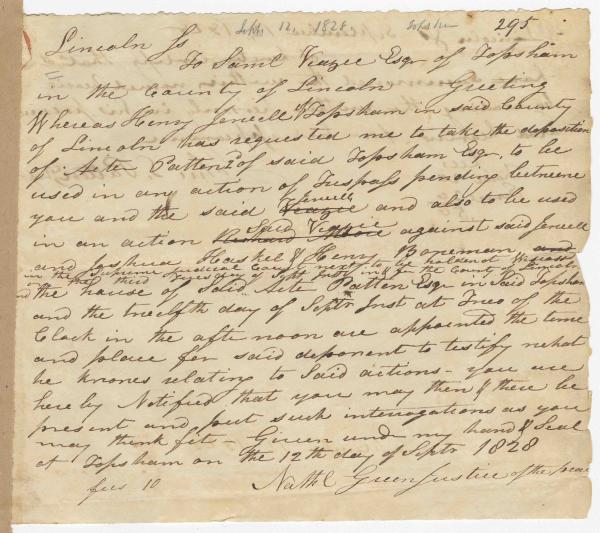 Sept. 12, 1828. Topsham
295
Lincoln Ss
To Saml Veazie Esqr of Topsham
in the County of Lincoln Greeting
Whereas Henry Jewell of Topsham in said County
of Lincoln has requested me to take the deposition
of Acter Patten 2d of said Topsham Esqr, to be
used in any action of Trespass pending betweene
you and the said Jewell Veazie and also to be used
in an action Said Veazie Richard against said Jewell
and Joshua Haskel & Henry Boreman and
in the Supreme Judicial Court next to be holden at Wiscasset
on the third Tuesday of Sept Inst in & for the County of Lincoln
and the house of Said Acter Patten Esqr in Said Topsham
and the twelfth day of Septr Inst at Two of the
Clock in the afternoon are appointed the time
and place for said deponent to testify what
he knowes relating to Said actions - you are
hereby Notified that you may then & there be
present and put such interrogations as you
may think fit - Given und my hand & Seal
at Topsham on the 12th day of Septr 1828
fees 10 Nathl Green Justice of the peace